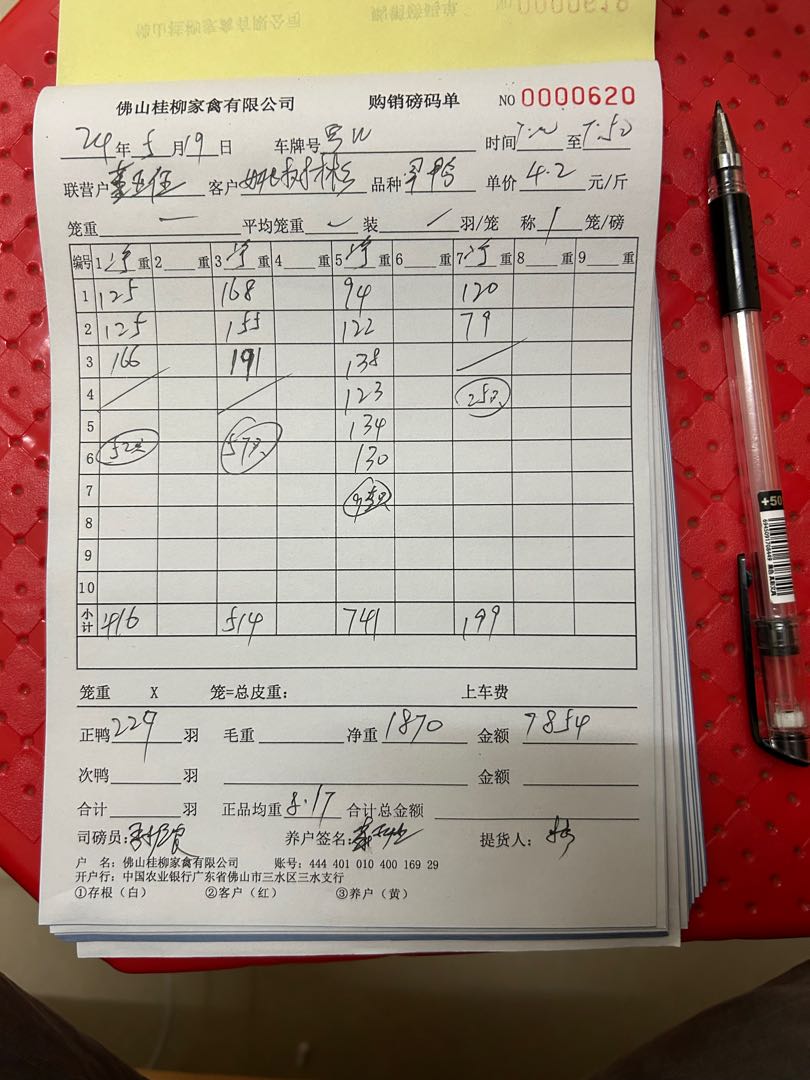 佛山桂柳家禽有限公司 购销磅码单 NO 0000618
佛山桂柳家禽有限公司 购销磅码单 NO 0000620
24年5月19日 车牌号 时间 至7:50
联营户 客户 品种 单价4.2元/斤
笼重 一 平均笼重 装 / 羽/笼 称 / 笼/磅
编号 1净重 2 重 3净重 4 重 5净重 6 重 7净重 8 重 9 重
1 125 168 94 120
2 125 155 122 79
3 166 191 138 /
4 / / 123 25只
5 134
6 52只 57只 130
7
8
9
10
小计 416 514 741 199
笼重 X 笼=总皮重: 上车费
正鸭229羽 毛重 净重1870 金额7854
次鸭 羽 金额
合计 羽 正品均重8.17 合计总金额
司磅员: 养户签名: 提货人:
户 名: 佛山桂柳家禽有限公司 账号: 444 401 010 400 169 29
开户行: 中国农业银行广东省佛山市三水区三水支行
①存根(白) ②客户(红) ③养户(黄)
+50